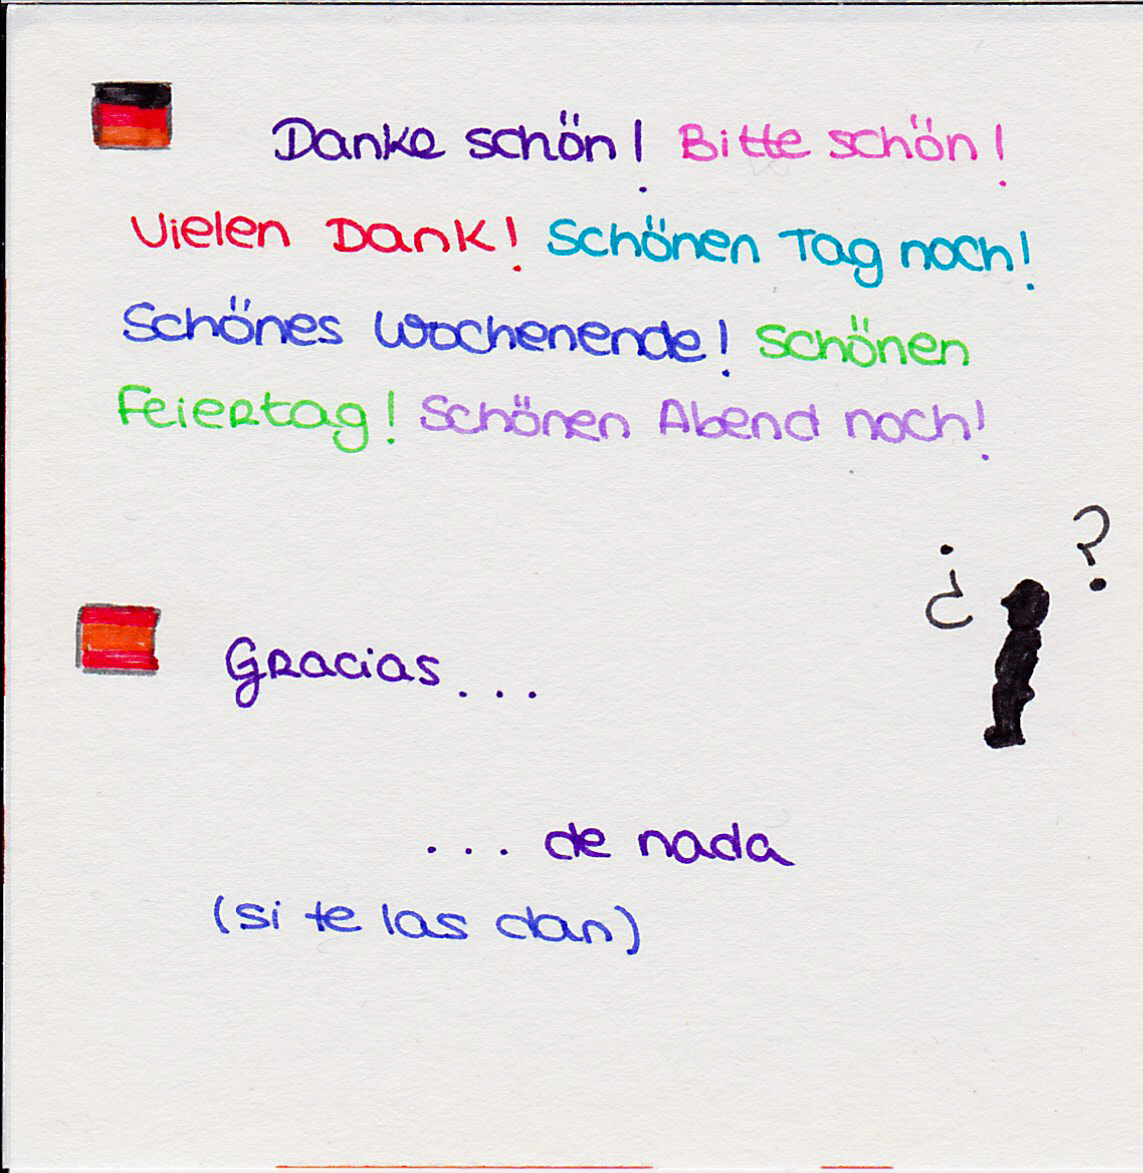 Danke schön! Bitte schön!
Vielen Dank! Schönen Tag noch!
Schönes Wochenende! Schönen
Feiertag! Schönen Abend noch!
¿ ?
Gracias...
... de nada
(si te las dan)